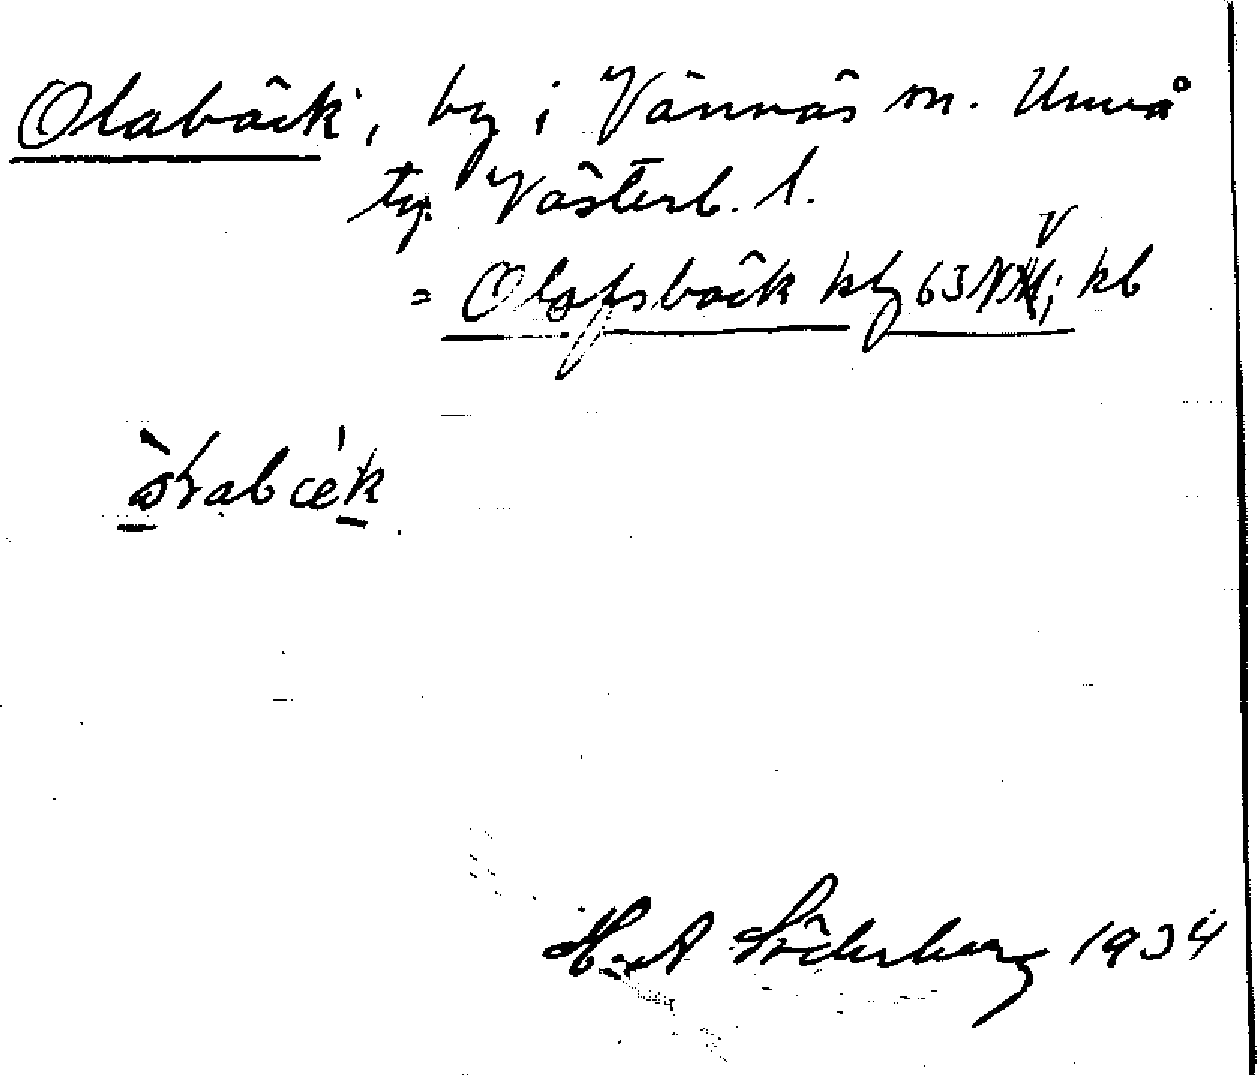 Olabäck, by i Vännäs sn. Umeå
tg. Västerb. l.
= Olofsbäck kbg 63 NV; kb
H. A. Söderberg 1934